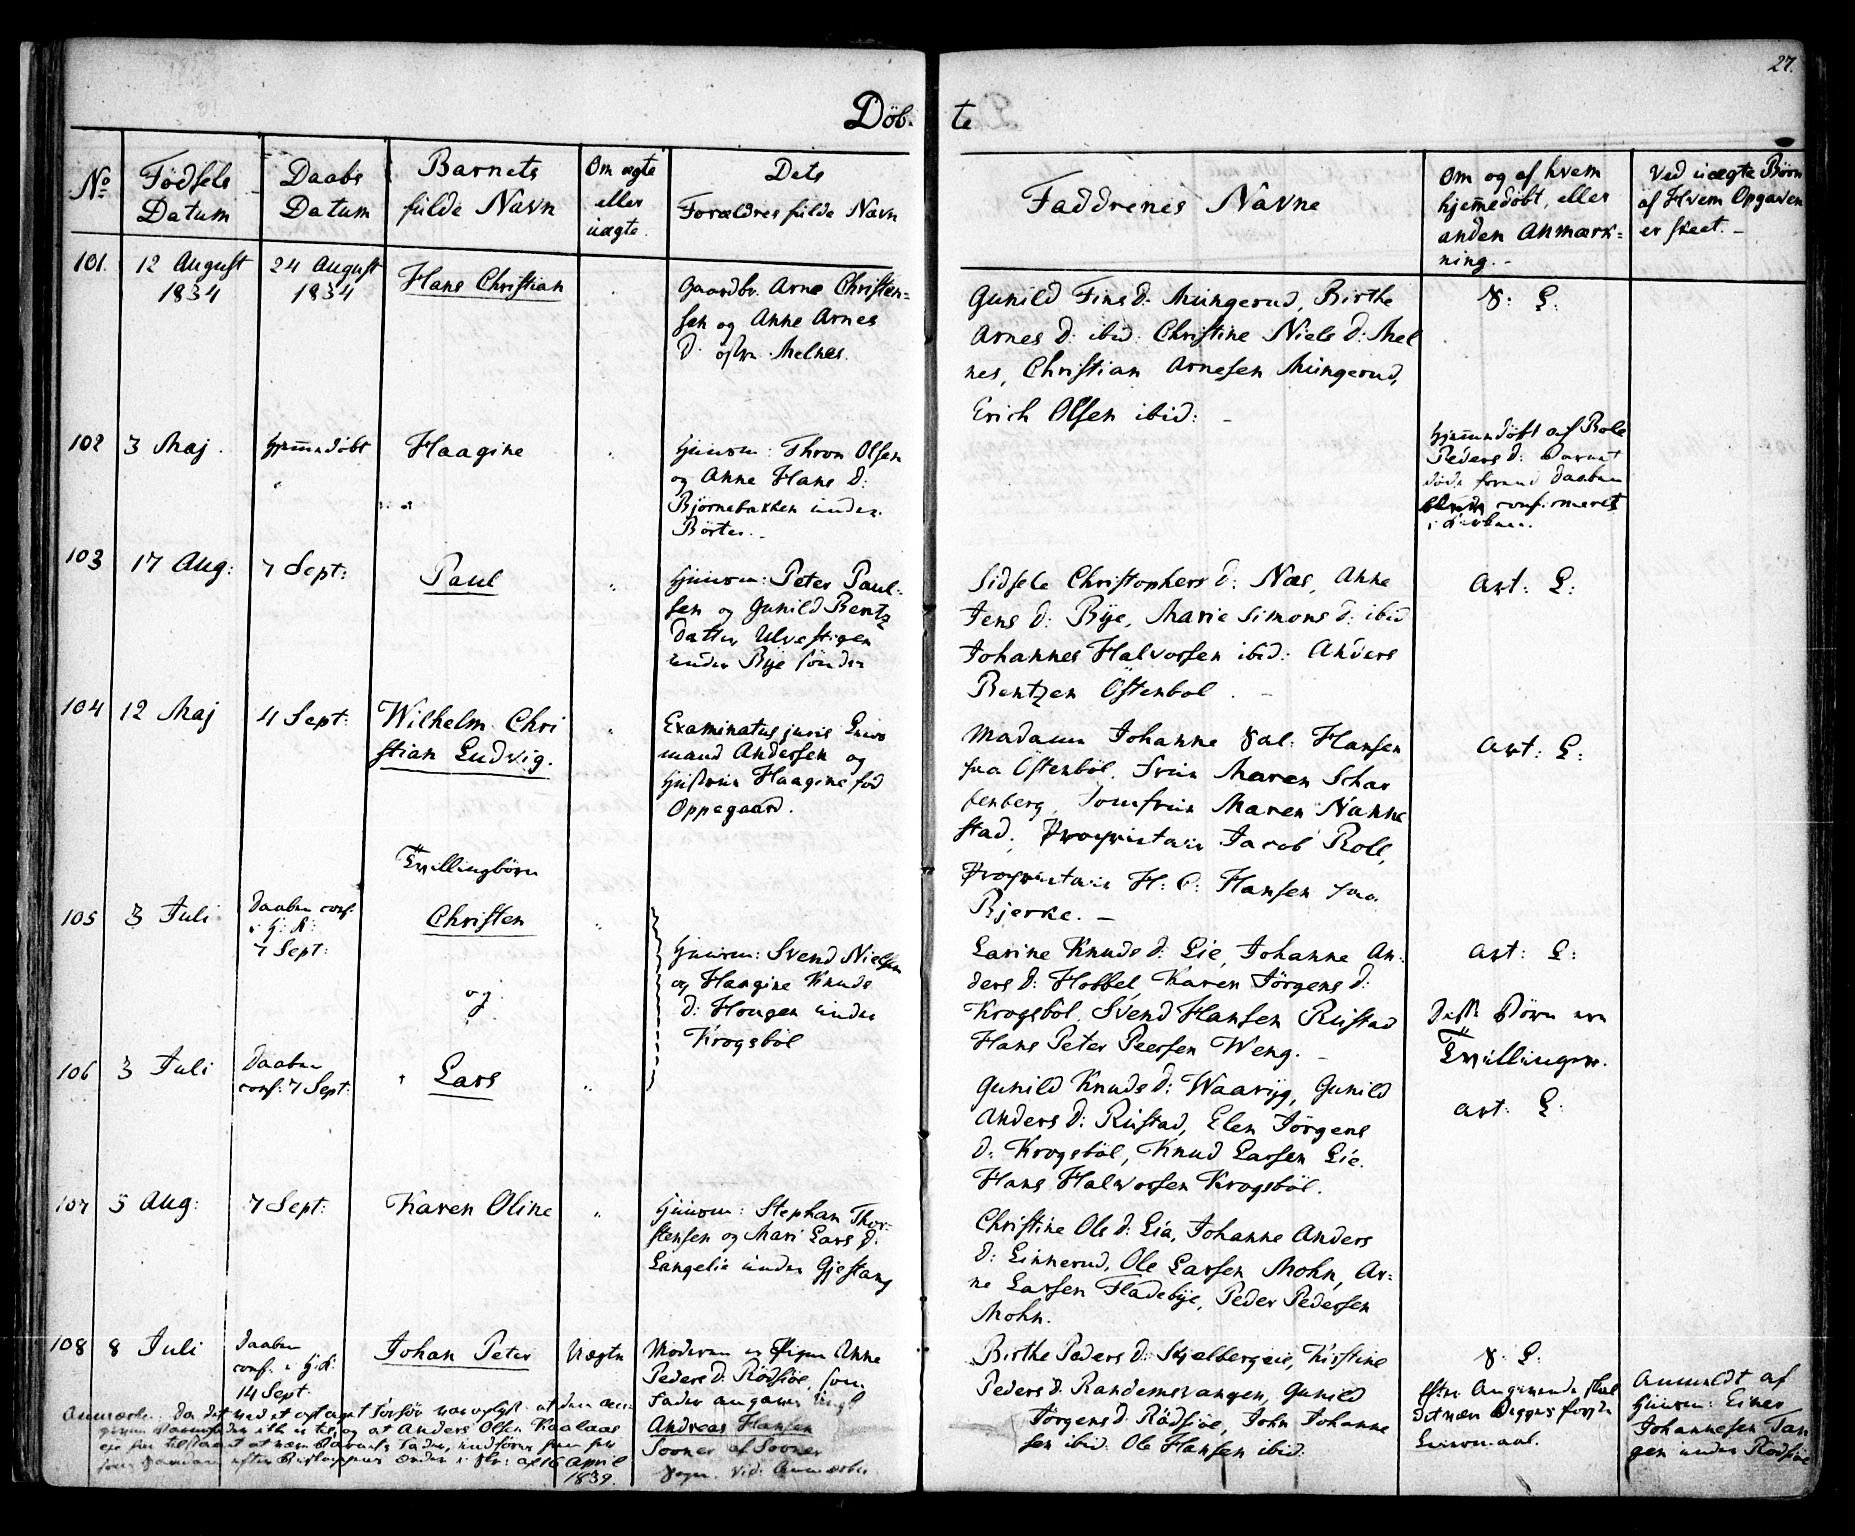 27.
Döb- te
No
Födsels Datum
Daabs Datum
Barnets fulde Navn
Om ægte eller uægte.
Dets Forældres fulde Navn
Faddrenes Navne
Om og af hvem hjemmedöbt, eller anden Anmærk-
ning. -
Ved uægte Börn af Hvem Opgaven er skeet. -
101. 12 August 1834
24 August 1834
Hans Christian
Gaardbr. Arne Christen-
sen og Anne Arnes
D: östre Melnes.
Gunild Finsd: Mungerud, Birthe
Arnes D: ibid: Christine Niels D: Mel
nes, Christian Arnesen Mungerud,
Erich Olsen ibid: -
102 3 Maj.
hjemmedöbt
Haagine
Huusm: Thron Olsen
og Anne Hans D:
Björnebakken under
Börter. -
Hjemmedöbt af Bole
Peders D: Barnet
döde forend Daaben
confirmeret
i Kirken.
103 17 Aug:
7 Sept:
Paul
Huusm: Peter Paul-
sen og Gunild Bentz
Datter Ulvestigen
under Bye söndre
Sidsele Christophers D: Næs, Anne
Jens D: Bye, Marie Simons D: ibid
Johannes Halvorsen ibid: Anders
Bentzen Östenböl. -
Art: L:
104 12 Maj
4 Sept:
Wilhelm Chri
stian Ludvig.
Examinatus juris
mand Andersen og
Hustrue Haagine föd
Oppegaard.
Madam Johanne Hansen
paa Östenböl, Frue Maren Schar
fenberg, Jomfrue Maren Nanne
stad, Proprietair Jacob Roll,
Proprietair H: C: Hansen paa
Bjerke. -
Art: L:
Tvillingbörn
105 3 Juli
Daaben conf.
i H: K:
7 Sept:
Christen
og
Huusm: Svend Nielsen
og Haagine Knuds
D: Hougen under
Krogsböl
Larine Knuds D: Lie, Johanne An-
ders D: Hobbel, Karen Jörgens D:
Krogsböl, Svend Hansen Rustad
Hans Peter Peersen Weng. -
Art: L:
Disse Börn ere
Tvillinger.
106 3 Juli
Daaben
conf: 7 Sept:
Lars
Gunild Knuds D: Waaryg, Gunild
Anders D: Rustad, Elen Jörgens
D: Krogsböl, Knud Larsen Lie.
Hans Halvorsen Krogsböl.
Art: L:
107 5 Aug:
7 Sept:
Karen Oline
Huusm: Stephan Thor-
stensen og Mari Lars D:
Langelie under Gjestang
Christine Ols D: Lia, Johanne Anders
D: Linnerud, Ole Larsen Mohn, Ar-
ne Larsen Fladebye, Peder Pedersen
Mohn.
108 8 Juli
Daaben
conf. i H: K:
14 Sept:
Johan Peter
Uægte
Moderen er Pigen Anne
Peders D: Rödsöe, som
Fader angaves
Andreas Hansen
Sooner af Sooner
Sogn. Vid: Anmærkn.
Birthe Peders D: Skjelbergeie, Kirstine
Peders D: Randemsvangen, Gunild
Jörgens D: Rödsöe, John Johanne
sen ibid. Ole Hansen ibid.
Efter Angivende skal
det være Begges förste
Leiermaal.
Anmeldt af
Huusm: Einer
Johannesen Tan
gen under Rödsöe
Anmærkn. Da det ved et optaget Forhör var oplyst at den an-
givne Barnefader ikke er til, og at Anders Olsen Kaalaas
har tilstaaet at være Barnets Fader, indföres
efter Bispens Ordre i Br: af 16 April
1839.